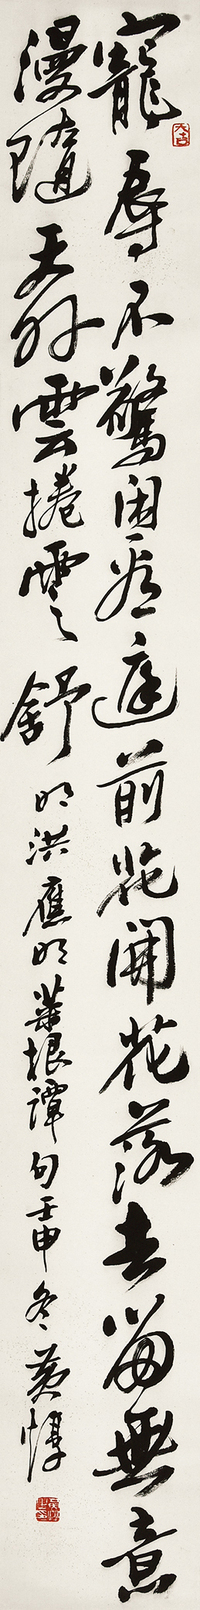 寵辱不驚閑看庭前花開花落去留無意
漫隨天外雲捲雲舒
明洪應明菜根譚句壬申冬黃惇